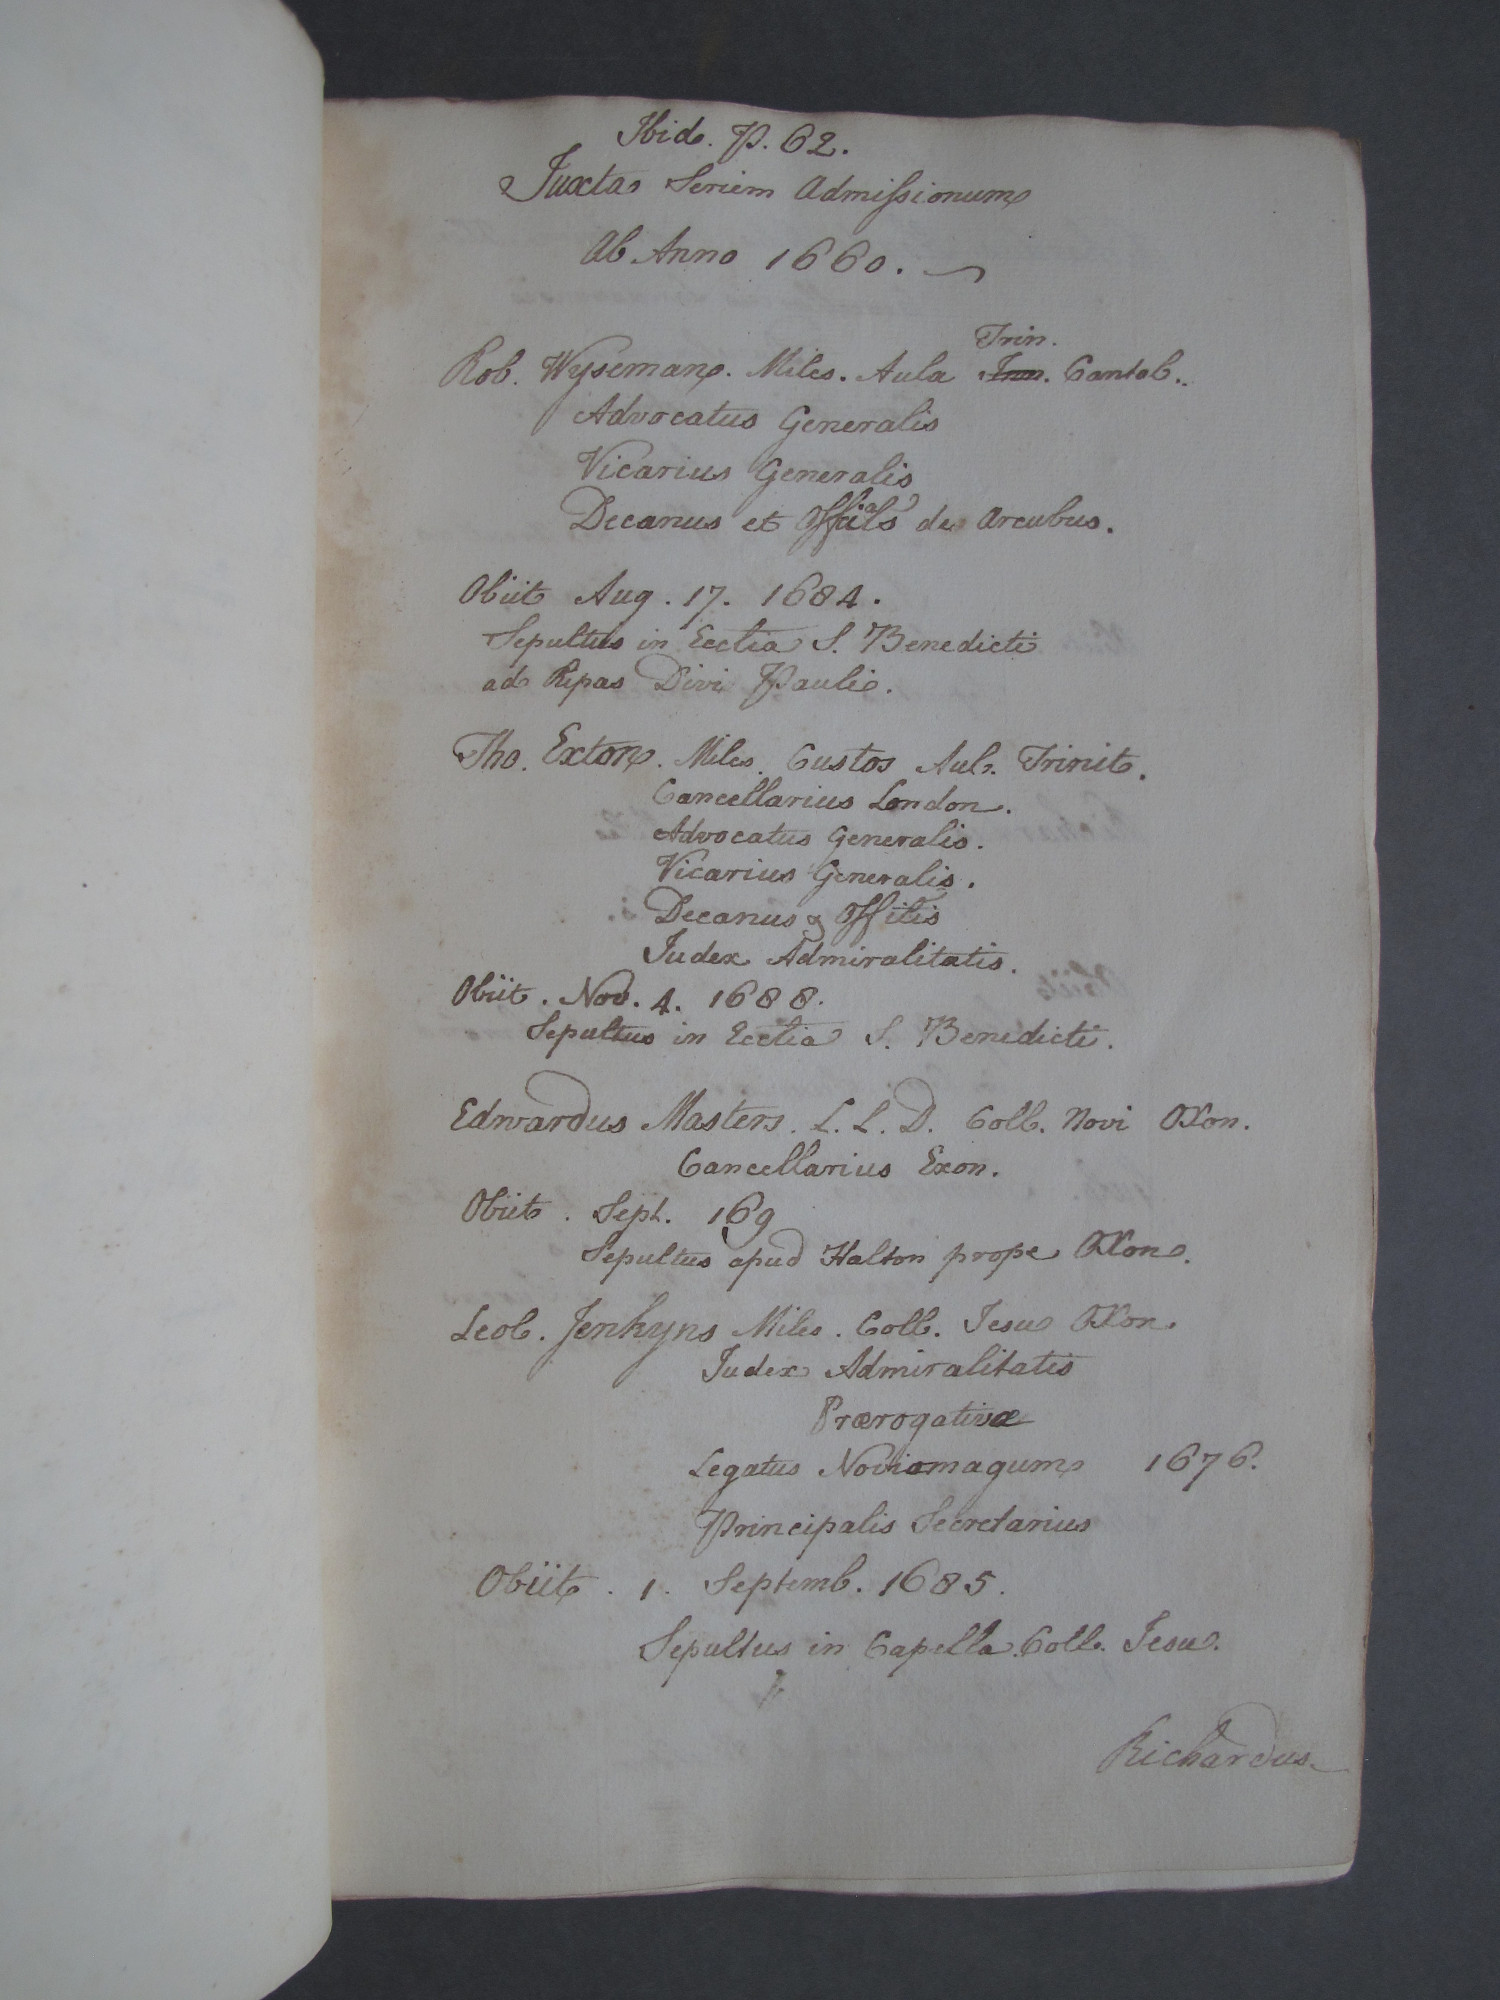 Ibid. P. 62.
Juxta Seriem Admissionum
Ab Anno 1660.
Trin.
Rob. Wyseman. Miles. Aula Cantab.
Advocatus Generalis
Vicarius Generalis
Decanus et Offials de Arcubus.
Obiit Aug. 17. 1684.
Sepultus in Ecclia S. Benedicti
ad Ripas Divi Pauli.
Tho. Exton. Miles. Custos Aul. Trinit.
Cancellarius London.
Advocatus Generalis.
Vicarius Generalis.
Decanus & Offilis
Judex Admiralitatis.
Obiit. Nov. 4. 1688.
Sepultus in Ecclia S. Benedicti.
Edwardus Masters. L. L. D. Coll. Novi Oxon.
Cancellarius Exon.
Obiit. Sept. 169
Sepultus apud Halton prope Oxon.
Leol. Jenkyns Miles. Coll. Jesu Oxon.
Judex Admiralitatis
Prærogativæ
Legatus Noviomagum 1676.
Principalis Secretarius
Obiit. 1. Septemb. 1685.
Sepultus in Capella Coll. Jesu.
Richardus